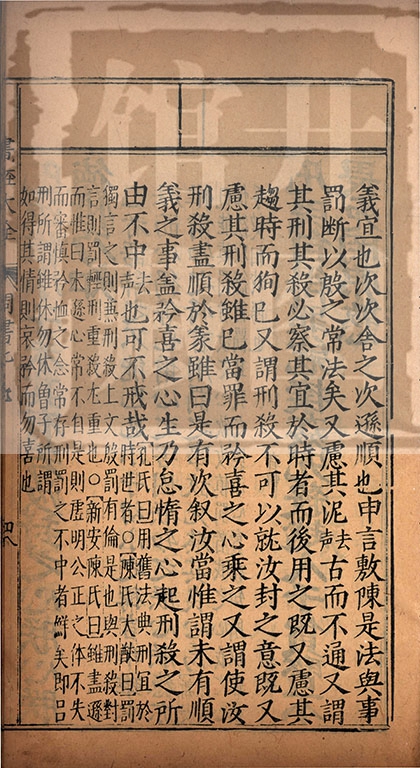 義宜也次次舎之次遜順也申言敷陳是法與事
罰斷以殷之常法矣又慮其泥去聲古而不通又謂
其刑其殺必察其宜於時者而後用之既又慮其
趨時而狥巳又謂刑殺不可以就汝封之意既又
慮其刑殺雖巳當罪而矜喜之心乗之又謂使汝
刑殺盡順於義雖曰是有次叙汝當惟謂未有順
義之事盖矜喜之心生乃怠惰之心起刑殺之所
由不中去聲也可不戒哉孔氏曰用舊法典刑宜於時世者○陳氏大猷曰罰
獨言之則兼刑殺上文殷罰有倫是也與刑殺對
言則罰輕刑重殺尤重也○新安陳氏曰雖盡遜
而惟曰未遜心常不自是則虚明公正之体不失
而審慎矜恤之念常存刑罰之不中者鮮矣即吕
刑所謂雖休勿休魯子所謂
如得其情則哀矜而勿喜也
書經大全
周書
四八